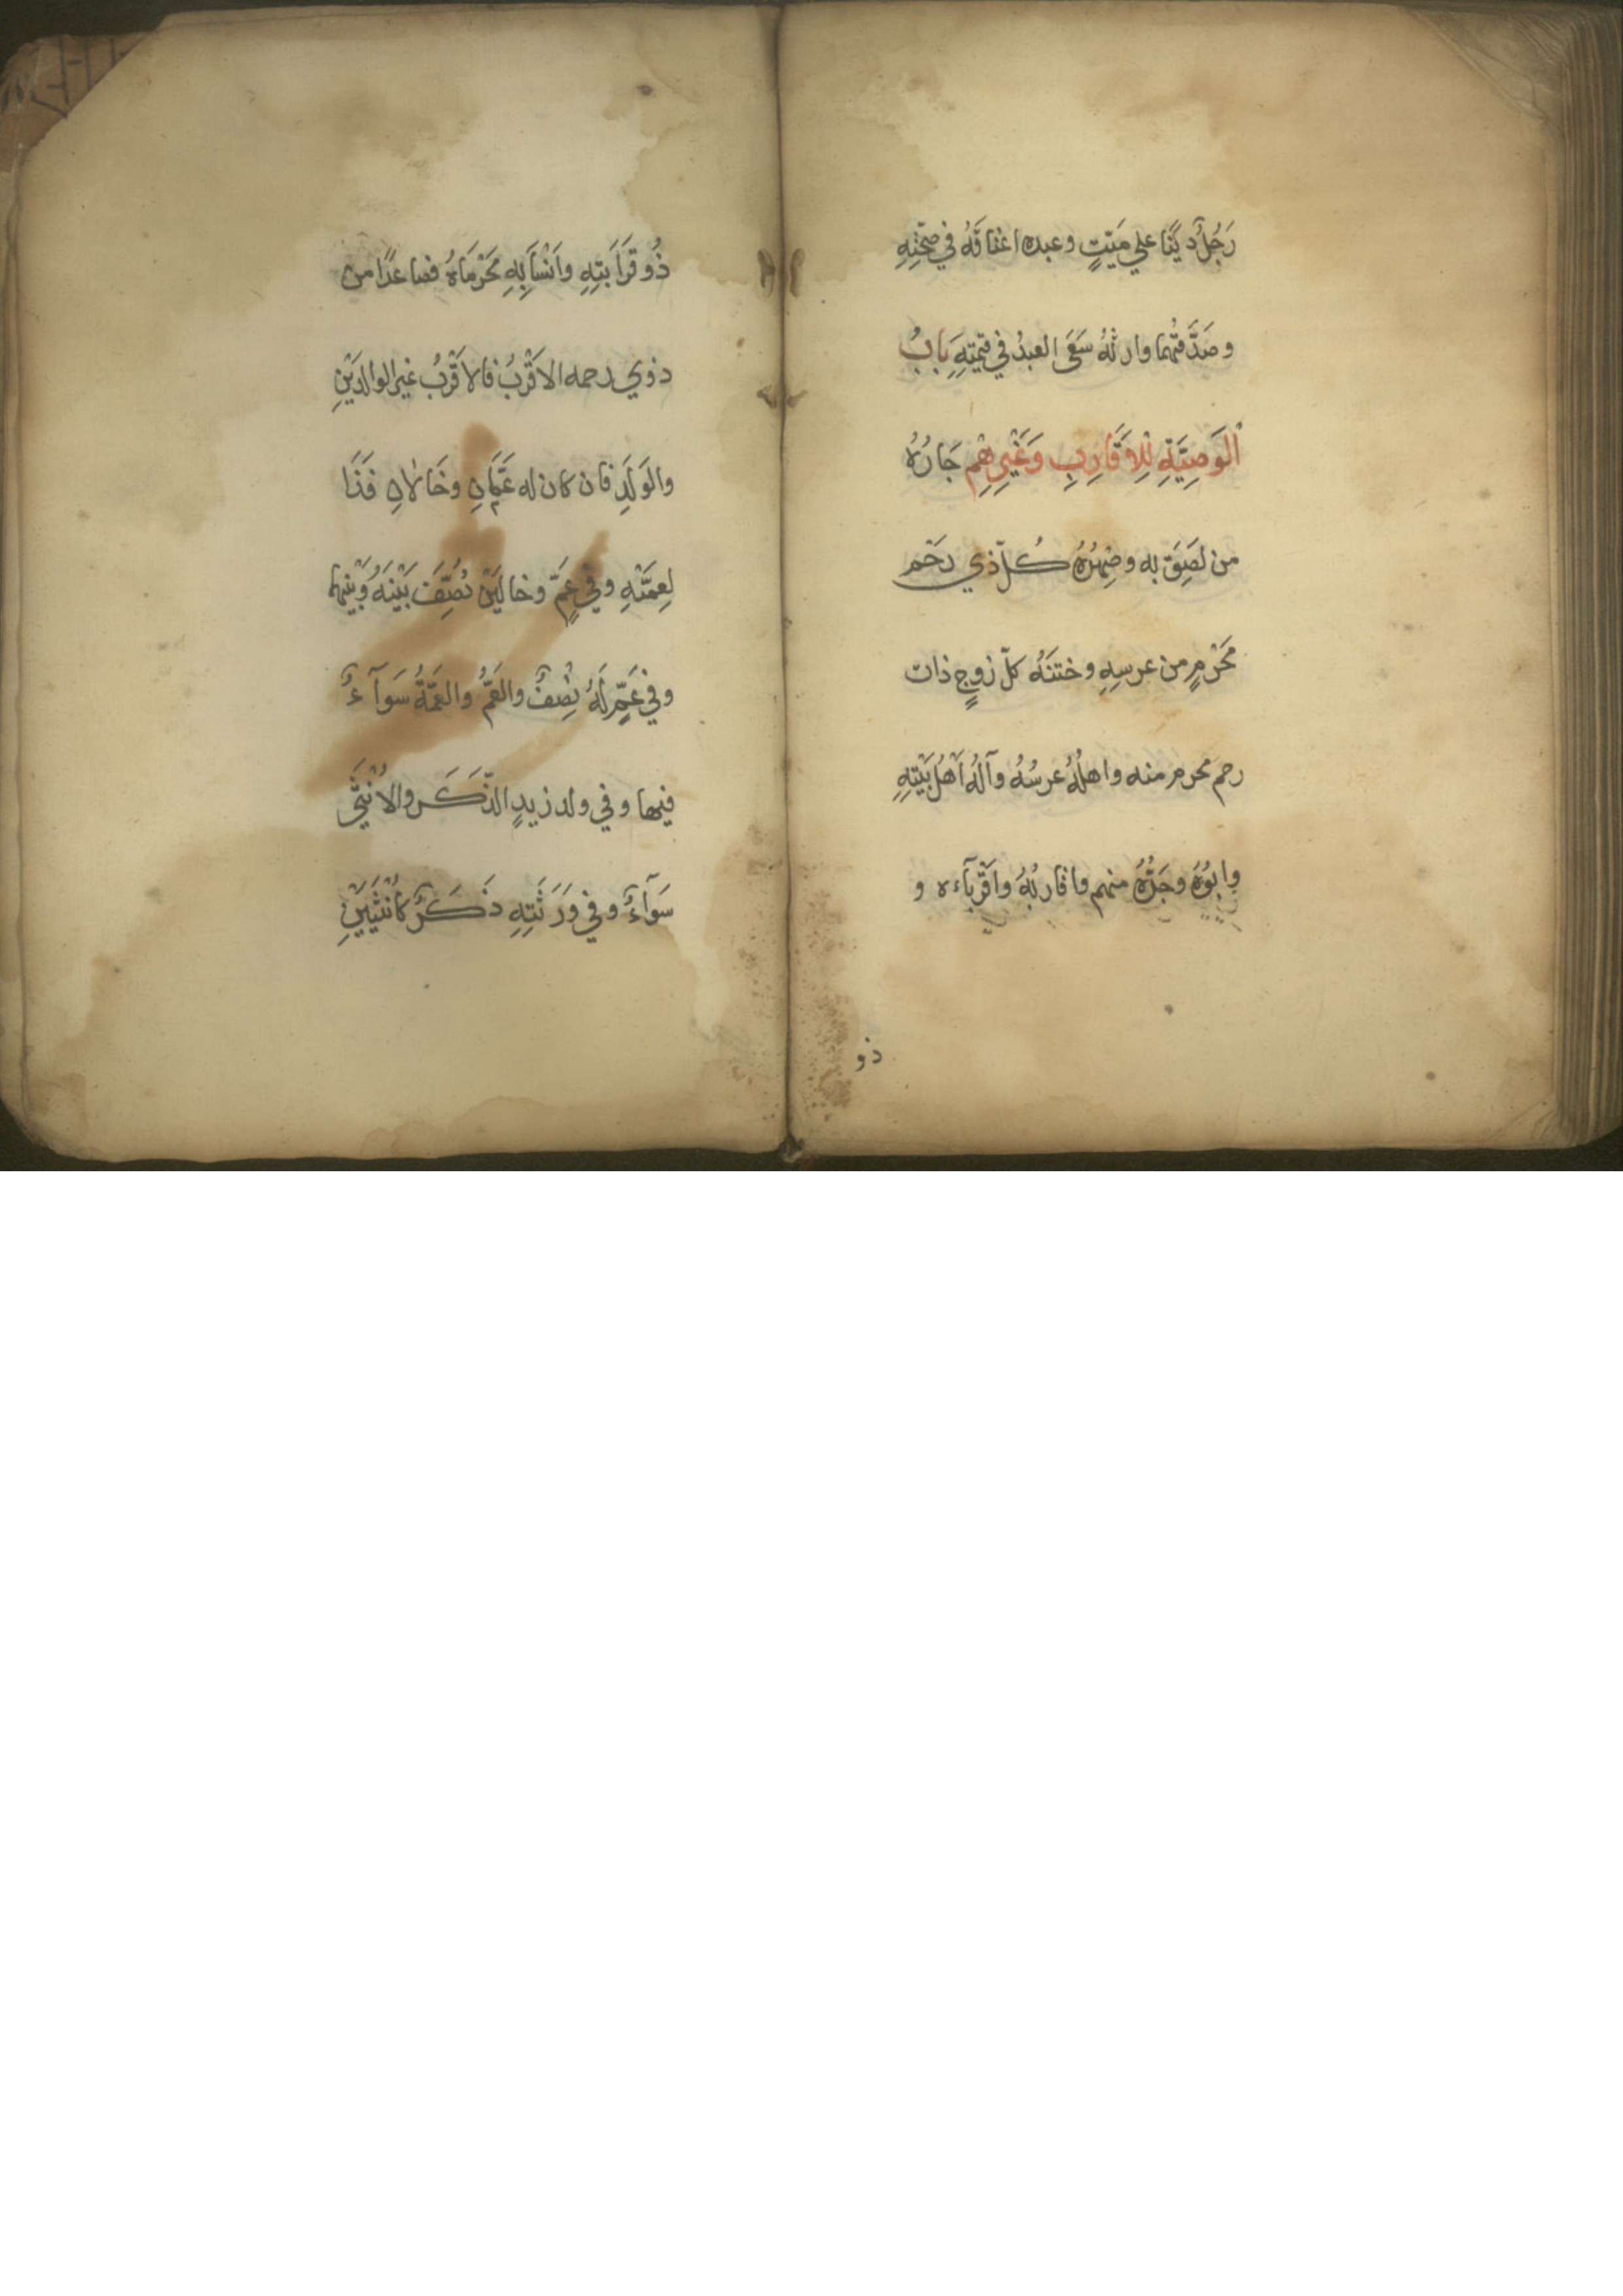 رَجُلٌ دَيْنًا علي مَيّتٍ وعبده اعْتاقَهُ في صِحّتِهِ
وصَدَّقَهُما وارثُهُ سَعَى العبدُ في قيمَتِهِ بابُ
الْوَصِيَّةِ لِلْاَقَارِبِ وَغَيْرِهِم جَارُهُ
من لَصِقَ به وصِهْرُهُ كُلّ ذي رَحْم
مَحْرَمٍ من عرسِهِ وختَنُه كلّ زوجٍ ذات
رحم محرم منه واهلُهُ عرسُهُ وآلُهُ اَهْلُ بَيْتِهِ
وابُوُهُ وجَدُّهُ منهم واقاربُهُ واَقْرِبآءه و
ذو
ذُو قَرَابَتِهِ واَنْسَابِهِ مَحْرَماهُ فصاعدًا من
ذوي رحمه الاَقْرَبُ فالاقْرَبُ غير الوالدَيْنِ
والوَلَدِ فان كان له عَمَّانِ وخَالانِ فَذَا
لِعمَّيْهِ وفي عمٍّ وخالَيْنِ نُصِّفَ بَيْنَهُ وَبَيْنهما
وفي عَمٍّ لَهُ نِصْفٌ والعَمُّ والعَمّةُ سَوآءٌ
فيها وفي ولد زيدٍ الذّكَر والاُنْثَى
سَوآءٌ وفي وَرَثَتِهِ ذَكَرٌ كاُنْثَيَيْنِ